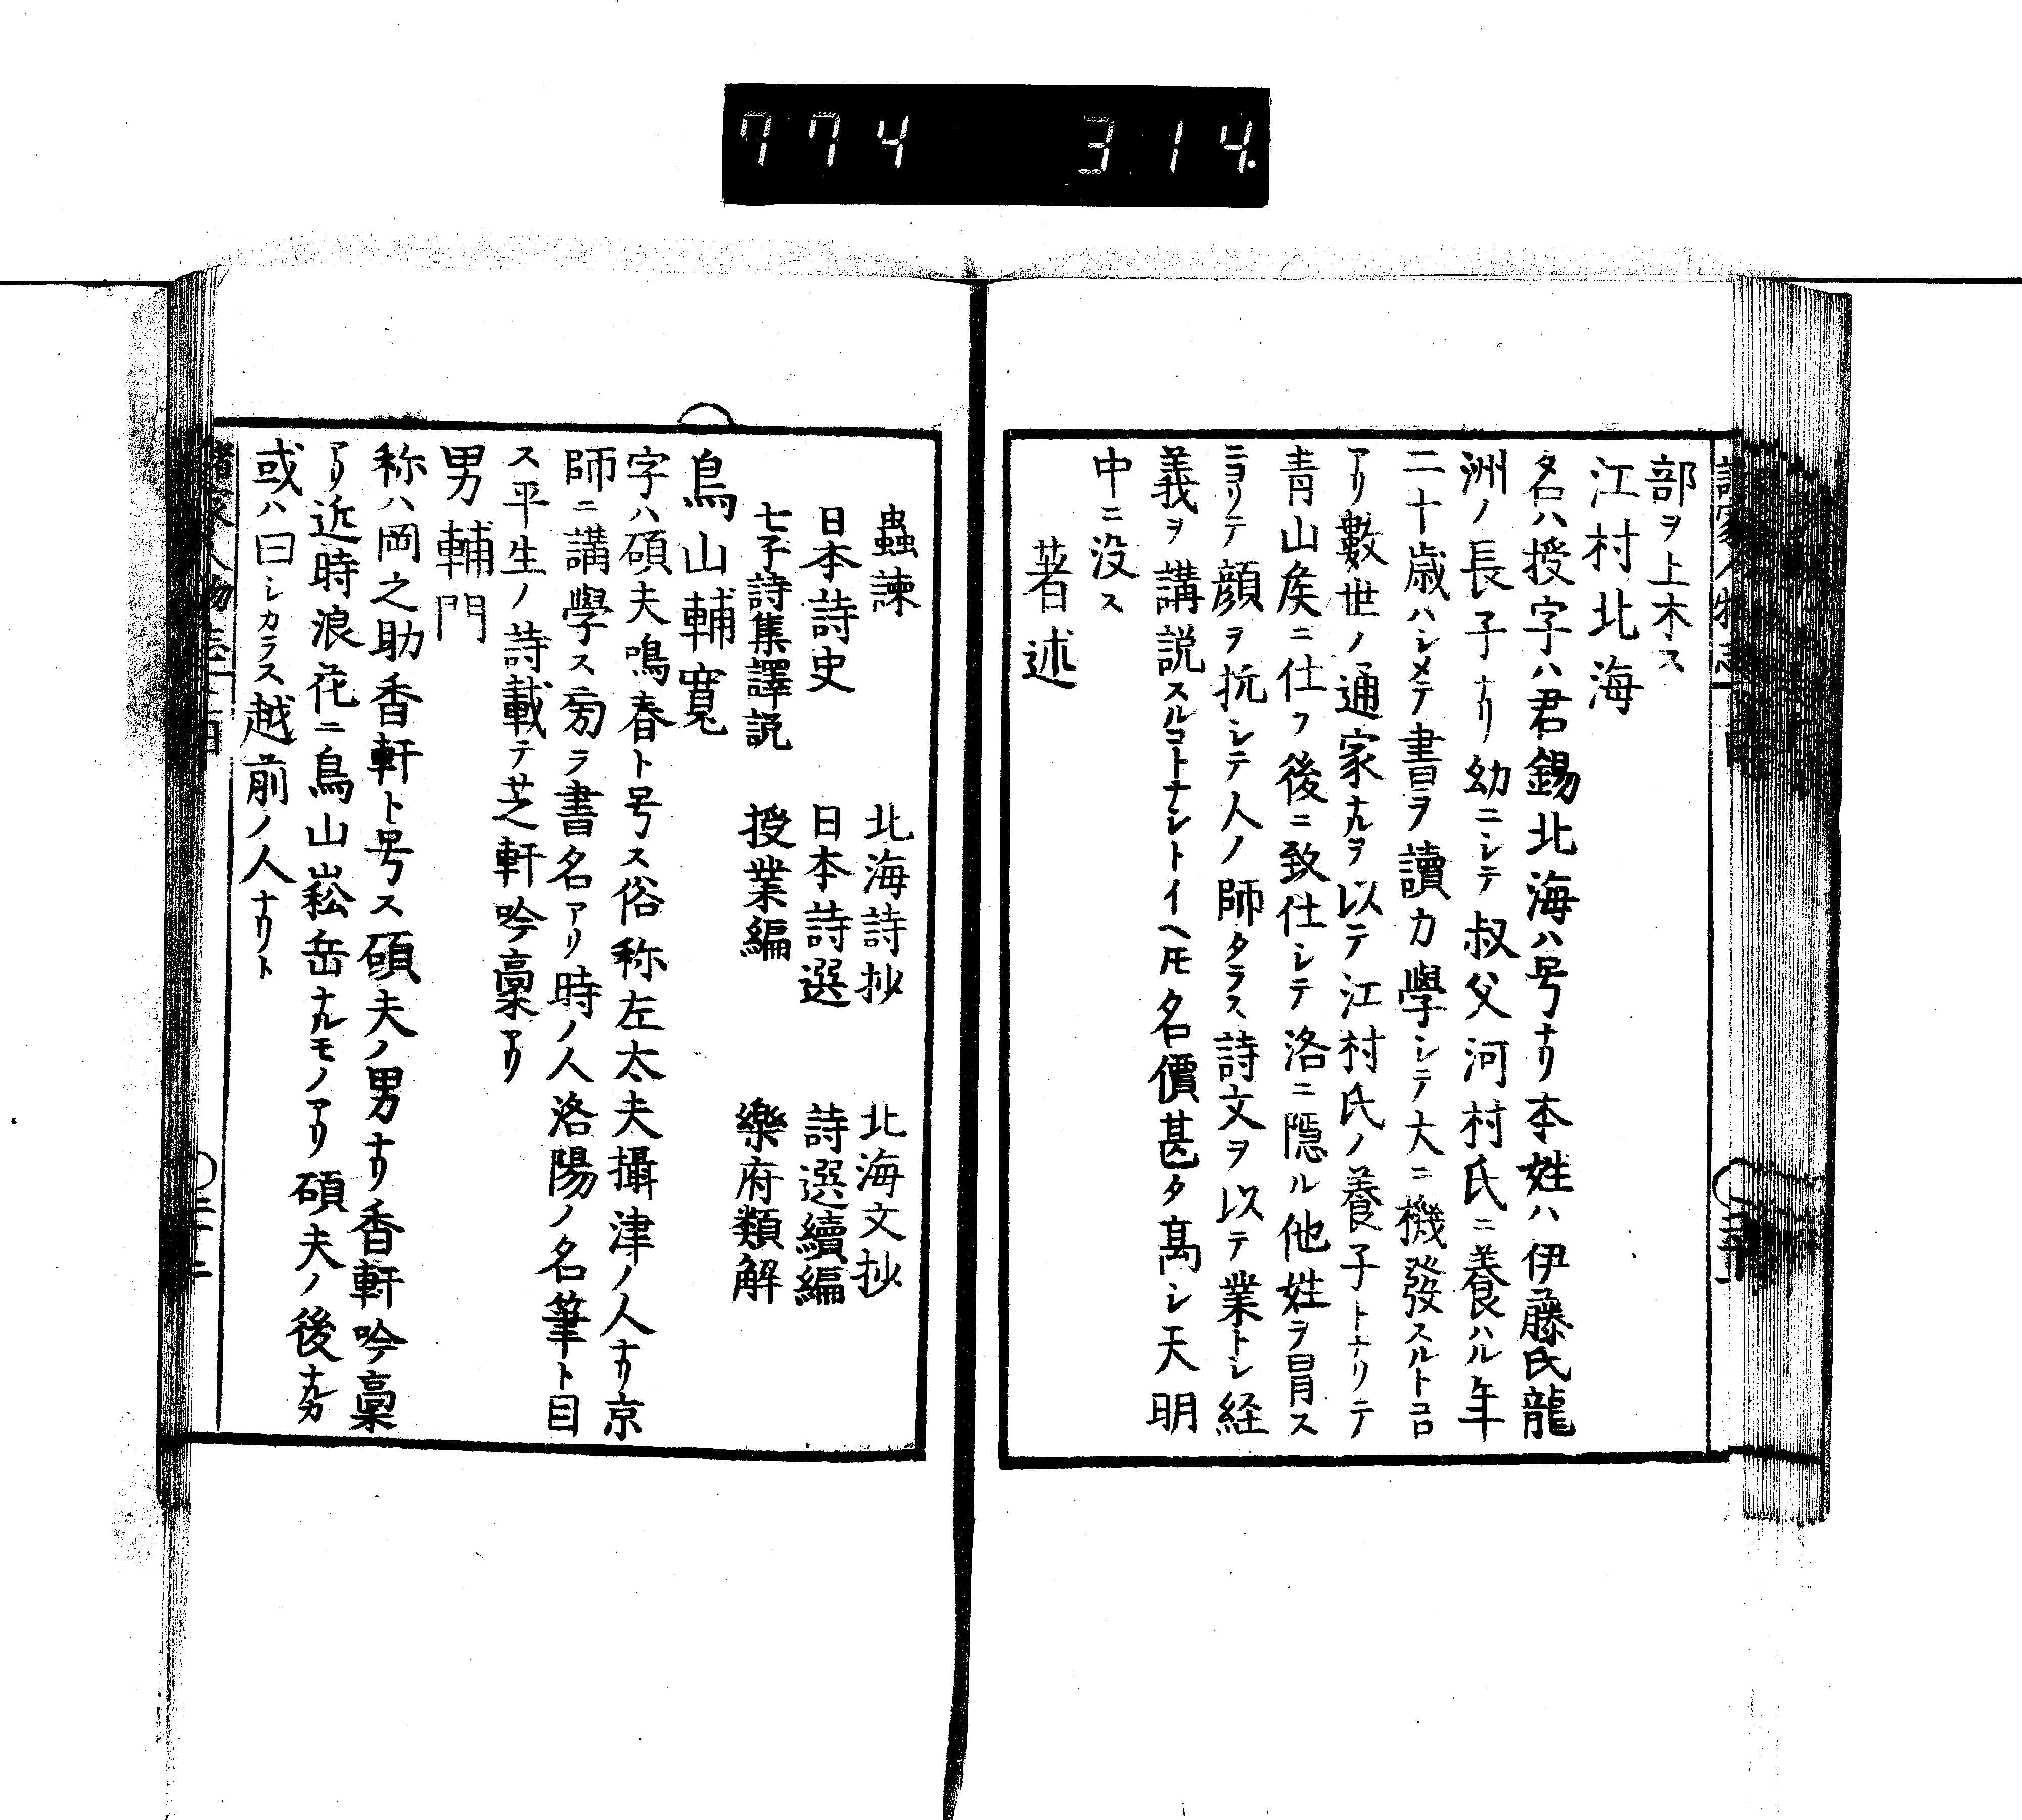 774 314.
部ヲ上木ス
江村北海
名ハ授字ハ君錫北海ハ号ナリ本姓ハ伊藤氏龍
洲ノ長子ナリ幼ニシテ叔父河村氏ニ養ハル年
二十歳ハシメテ書ヲ讀力學シテ大ニ機發スルトコロ
アリ數世ノ通家ナルヲ以テ江村氏ノ養子トナリテ
青山矦ニ仕フ後ニ致仕シテ洛ニ隠ル他姓ヲ冒ス
ニヨリテ顔ヲ抗シテ人ノ師タラス詩文ヲ以テ業トシ経
義ヲ講説スルコトナシトイヘ𪜈名價甚タ髙シ天明
中ニ没ス
著述
蟲諫 北海詩抄 北海文抄
日本詩史 日本詩選 詩選續編
七子詩集譯説 授業編 樂府類解
鳥山輔寛
字ハ碩夫鳴春ト号ス俗称左太夫攝津ノ人ナリ京
師ニ講學ス旁ラ書名アリ時ノ人洛陽ノ名筆ト目
ス平生ノ詩載テ芝軒吟稾アリ
男輔門
称ハ岡之助香軒ト号ス碩夫ノ男ナリ香軒吟稾
アリ近時浪花ニ鳥山崧岳ナルモノアリ碩夫ノ後ナルカ
或ハ曰シカラス越前ノ人ナリト